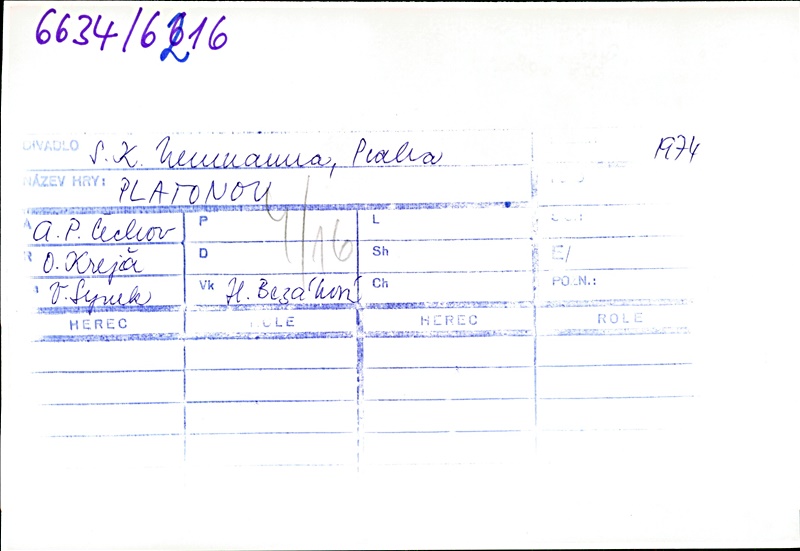 6634/6216
DIVADLO S. K. Neumanna, Praha 1974
NÁZEV HRY: PLATONOV
A. P. Čechov P L
O. Krejča D Sh E/
V. Synek Vk Ch POZN.:
4/16
HEREC ROLE HEREC ROLE